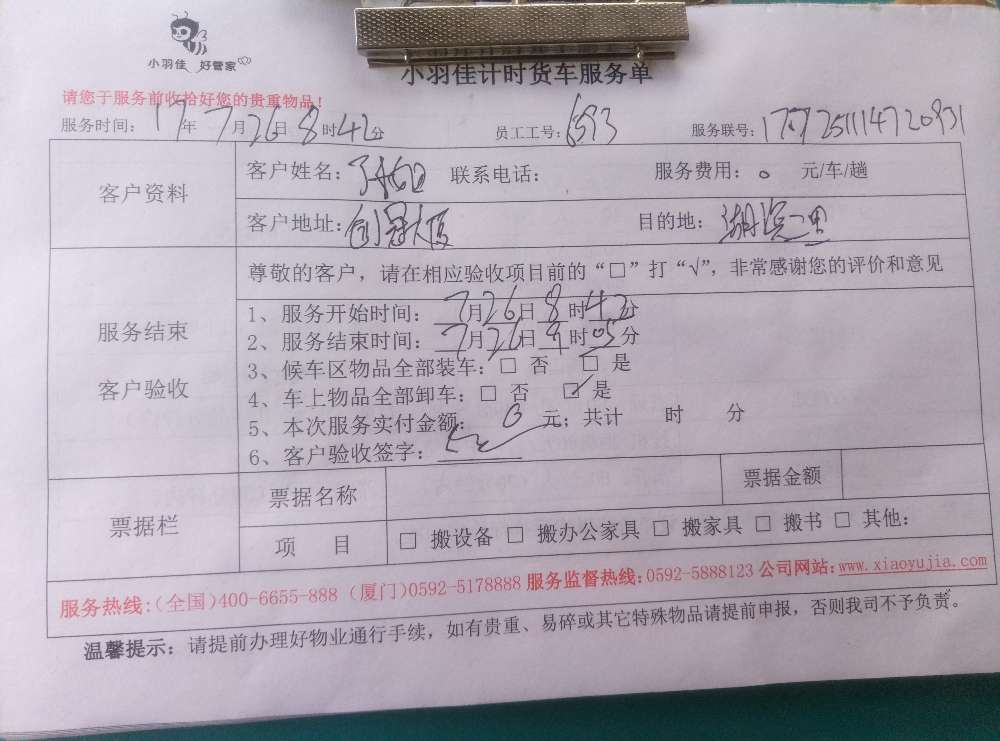 小羽佳 好管家
小羽佳计时货车服务单
请您于服务前收拾好您的贵重物品！
服务时间：17年7月26日8时42分 员工工号：6593 服务联号：
客户资料
客户姓名： 联系电话： 服务费用：0 元/车/趟
客户地址：创冠大厦 目的地：湖滨一里
服务结束
客户验收
尊敬的客户，请在相应验收项目前的“□”打“√”，非常感谢您的评价和意见
1、服务开始时间：7月26日8时42分
2、服务结束时间：7月26日9时05分
3、候车区物品全部装车：□ 否 □ 是
4、车上物品全部卸车：□ 否 ☑ 是
5、本次服务实付金额：0元；共计 时 分
6、客户验收签字：
票据栏
票据名称 票据金额
项 目 □ 搬设备 □ 搬办公家具 □ 搬家具 □ 搬书 □ 其他：
服务热线：(全国)400-6655-888 (厦门)0592-5178888 服务监督热线：0592-5888123 公司网站：www.xiaoyujia.com
温馨提示：请提前办理好物业通行手续，如有贵重、易碎或其它特殊物品请提前申报，否则我司不予负责。